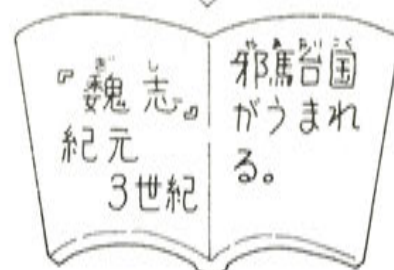 『魏志』
紀元
3世紀
邪馬台国
がうまれ
る。